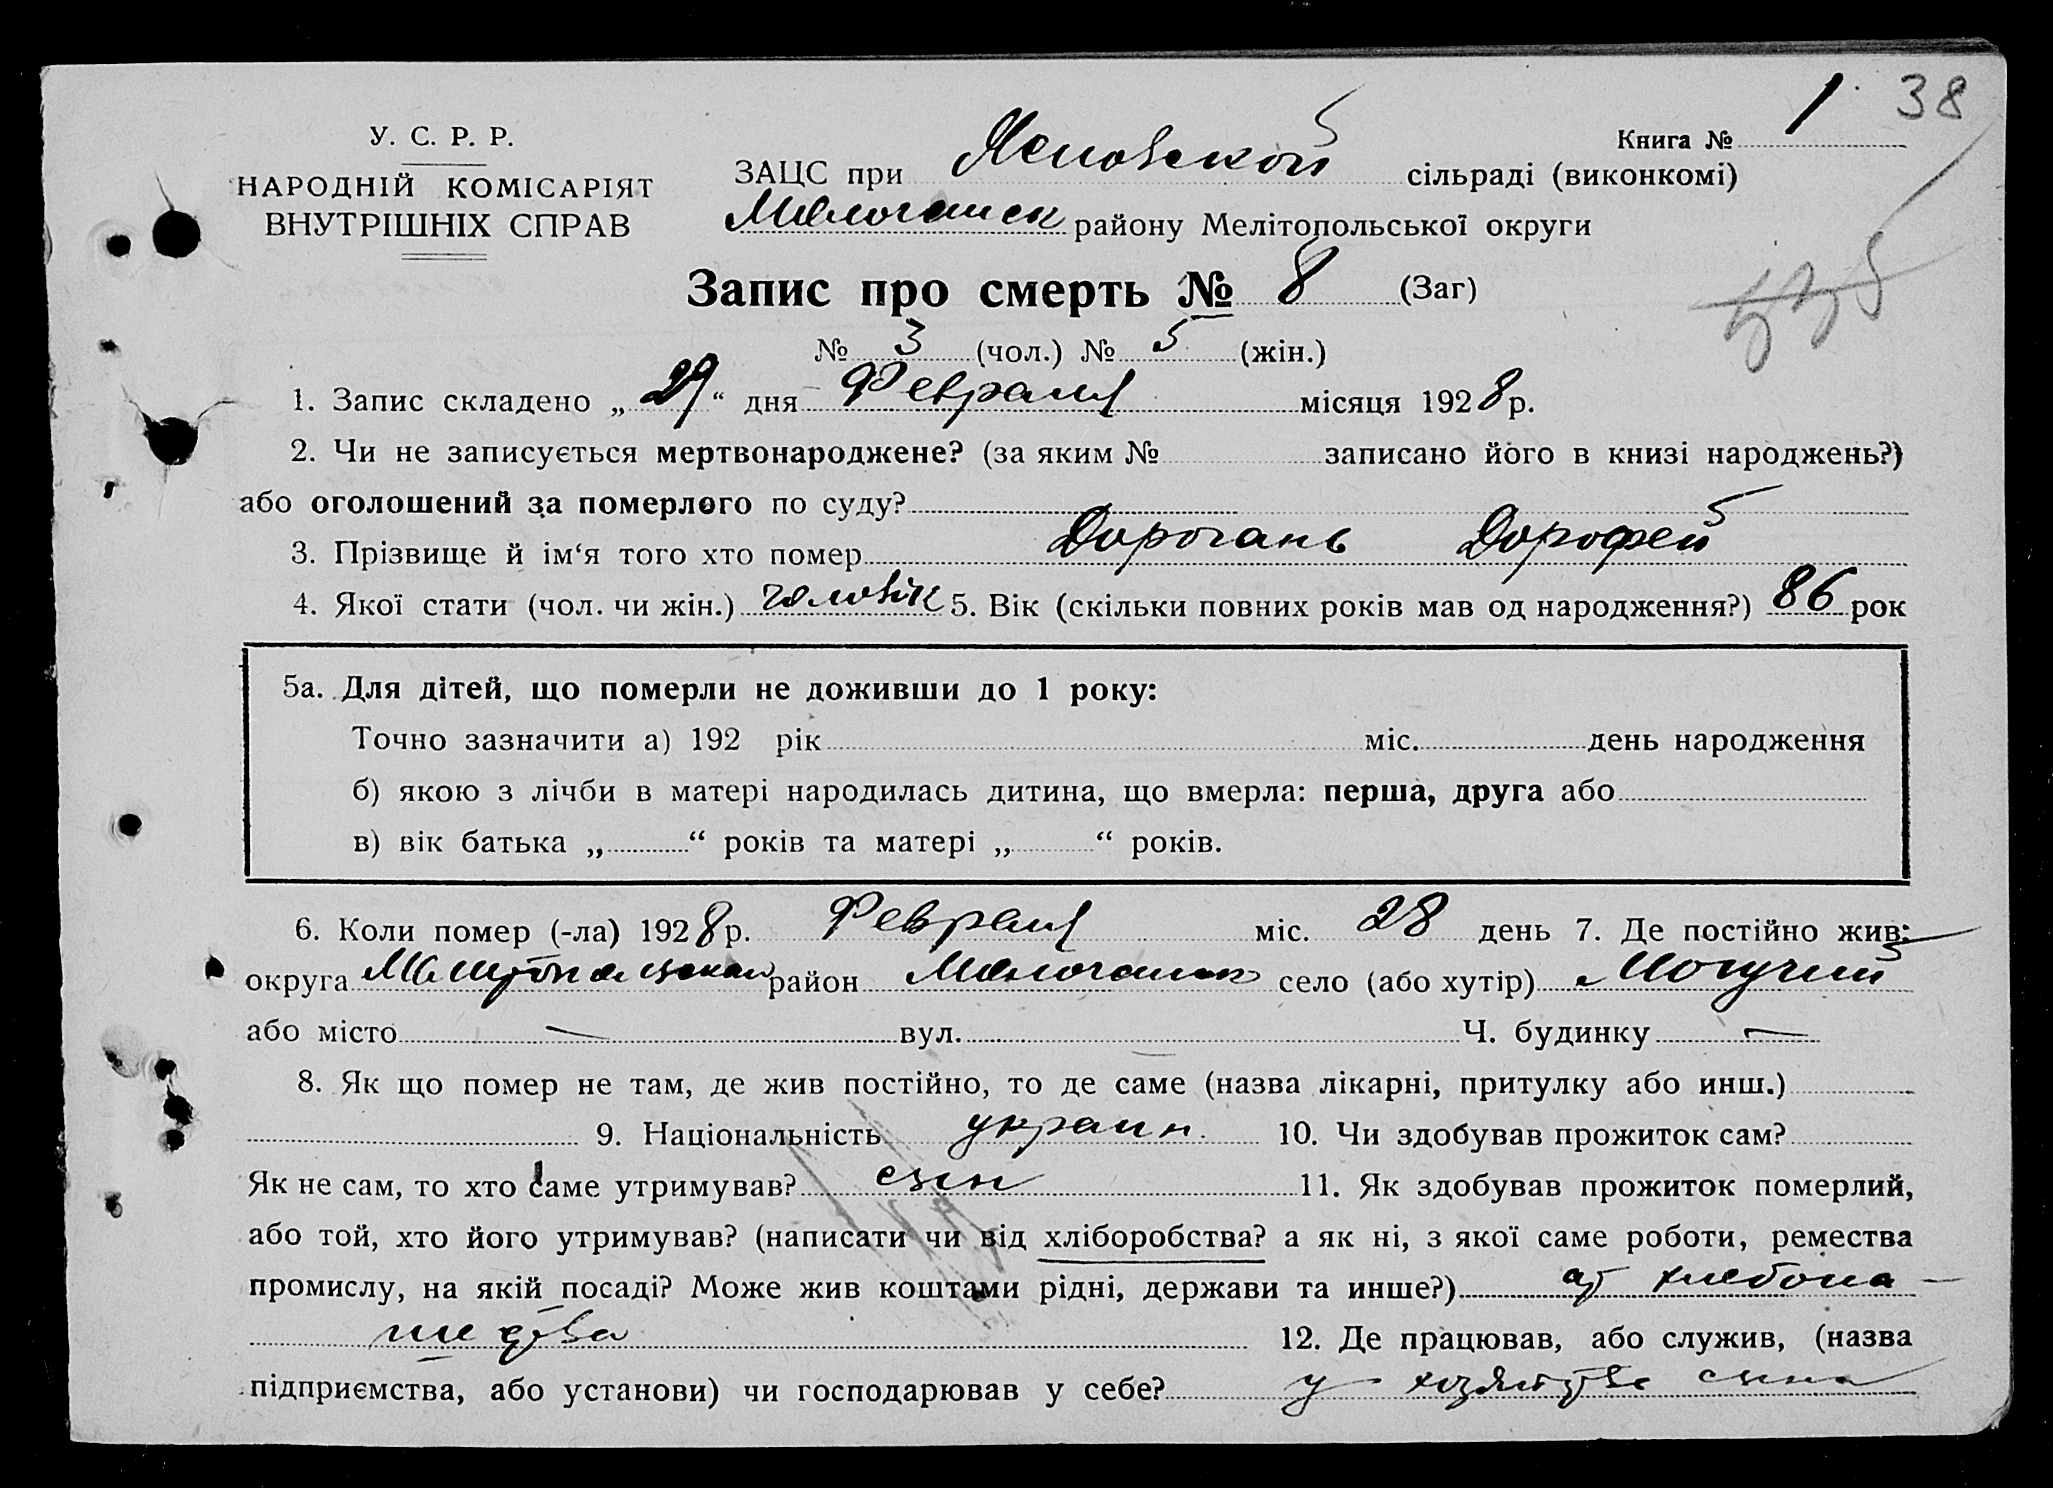 Книга № 1 38
У. С. Р. Р.
НАРОДНІЙ КОМІСАРІЯТ
ВНУТРІШНІХ СПРАВ
ЗАЦС при сільраді (виконкомі)
району Мелітопольської округи
Запис про смерть № 8 (Заг)
№ 3 (чол.) № 5 (жін.)
1. Запис складено „29“ дня Февраля місяця 1928 р.
2. Чи не записується мертвонароджене? (за яким № записано його в книзі народжень?)
або оголошений за померлого по суду?
3. Прізвище й ім‘я того хто помер Дорогань Дорофей
4. Якої стати (чол. чи жін.) чоловік 5. Вік (скільки повних років мав од народження?) 86 рок
5а. Для дітей, що померли не доживши до 1 року:
Точно зазначити а) 192 рік міс. день народження
б) якою з лічби в матері народилась дитина, що вмерла: перша, друга або
в) вік батька „ “ років та матері „ “ років.
6. Коли помер (-ла) 1928 р. Февраля міс. 28 день 7. Де постійно жив:
округа район село (або хутір) Могучий
або місто — вул. Ч. будинку —
8. Як що помер не там, де жив постійно, то де саме (назва лікарні, притулку або инш.)
9. Національність украин. 10. Чи здобував прожиток сам?
Як не сам, то хто саме утримував? сын 11. Як здобував прожиток померлий,
або той, хто його утримував? (написати чи від хліборобства? а як ні, з якої саме роботи, ремества
промислу, на якій посаді? Може жив коштами рідні, держави та инше?) от хлебопа-
шества 12. Де працював, або служив, (назва
підприємства, або установи) чи господарював у себе? у хозяйстве сына